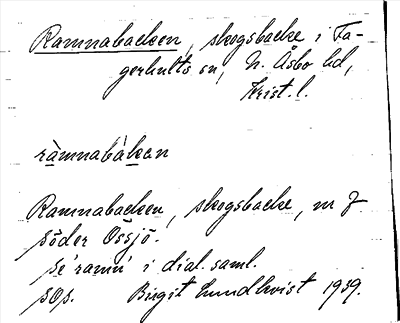 Ramnabacken, skogsbacke i Fa-
gerhults sn, N. Åsbo hd,
Krist. l.
ràmnabákan
Ramnabacken, skogsbacke, nr 7
söder Ossjö.
se 'ramn' i dial. saml.
sOp. Birgit Lundkvist 1939.